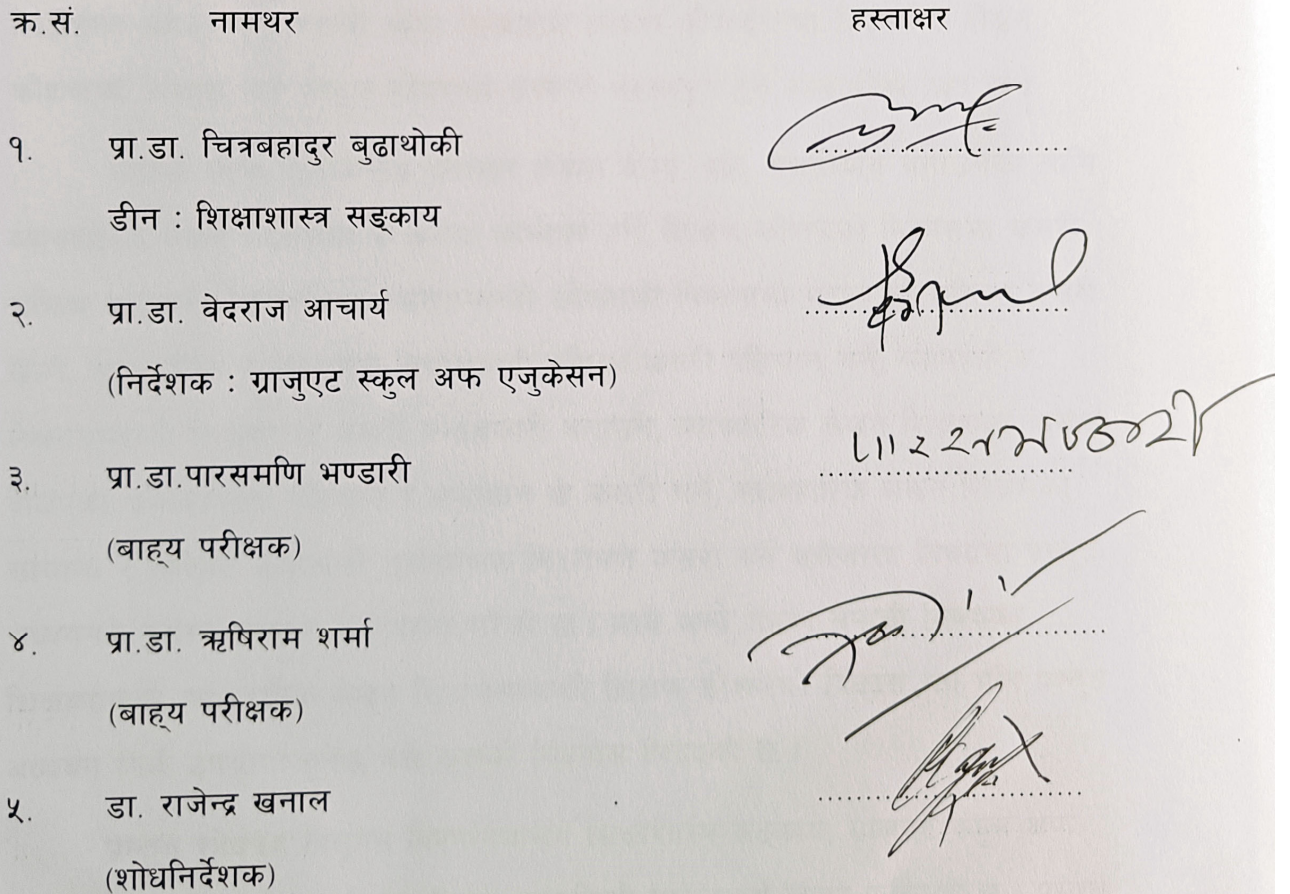 क्र.सं. नामथर हस्ताक्षर
१. प्रा.डा. चित्रबहादुर बुढाथोकी
डीन : शिक्षाशास्त्र सङ्काय
२. प्रा.डा. वेदराज आचार्य
(निर्देशक : ग्राजुएट स्कुल अफ एजुकेसन)
३. प्रा.डा.पारसमणि भण्डारी
(बाह्य परीक्षक)
४. प्रा.डा. ऋषिराम शर्मा
(बाह्य परीक्षक)
५. डा. राजेन्द्र खनाल
(शोधनिर्देशक)